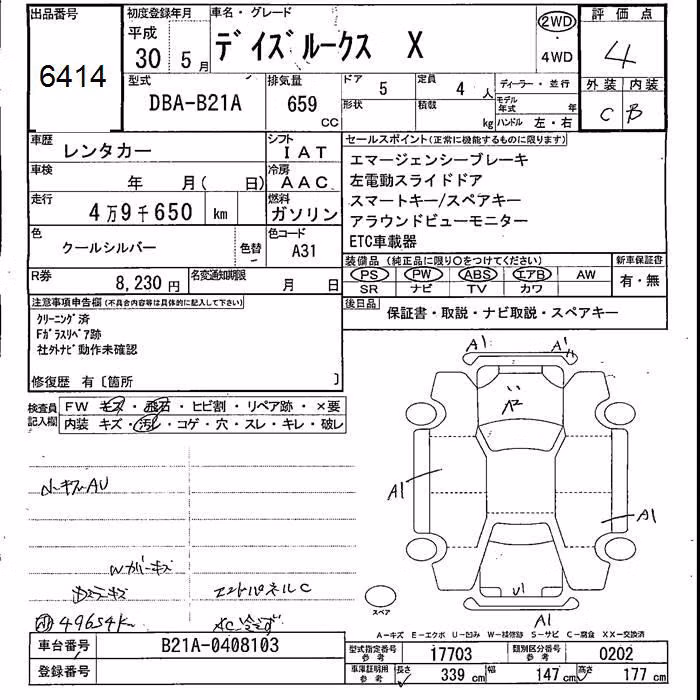 出品番号
6414
初度登録年月
平成
30 5月
車名・グレード
デイズルークス X
2WD
4WD
評価点
4
外装 内装
C B
型式
DBA-B21A
排気量
659 CC
ドア 5
定員 4 人
形状
積載 kg
ディーラー・並行
モデル年式 年
ハンドル 左・右
車歴 レンタカー
シフト IAT
車検 年 月( 日)
冷房 AAC
走行 4万9千650 km
燃料 ガソリン
色 クールシルバー
色替
色コード A31
R券 8,230円
名変通知期限 月 日
セールスポイント(正常に機能するものに限ります)
エマージェンシーブレーキ
左電動スライドドア
スマートキー/スペアキー
アラウンドビューモニター
ETC車載器
装備品(純正品に限り○をつけてください)
PS PW ABS エアB AW
SR ナビ TV カワ
新車保証書
有・無
後日品 保証書・取説・ナビ取説・スペアキー
注意事項申告欄(不具合内容等は具体的に記入して下さい)
クリーニング済
Fガラスリペア跡
社外ナビ動作未確認
修復歴 有〔箇所 〕
検査員記入欄
FW キズ・飛石・ヒビ割・リペア跡・×要
内装 キズ・汚レ・コゲ・穴・スレ・キレ・破レ
エンドパネルC
49654K
AC冷えず
A1
A1
A1
A1
A1
U1
スペア
A-キズ E-エクボ U-凹み W-補修跡 S-サビ C-腐食 XX-交換済
車台番号 B21A-0408103
登録番号
型式指定番号 参考 17703
類別区分番号 参考 0202
車庫証明用 参考 長さ 339 cm 幅 147 cm 高さ 177 cm